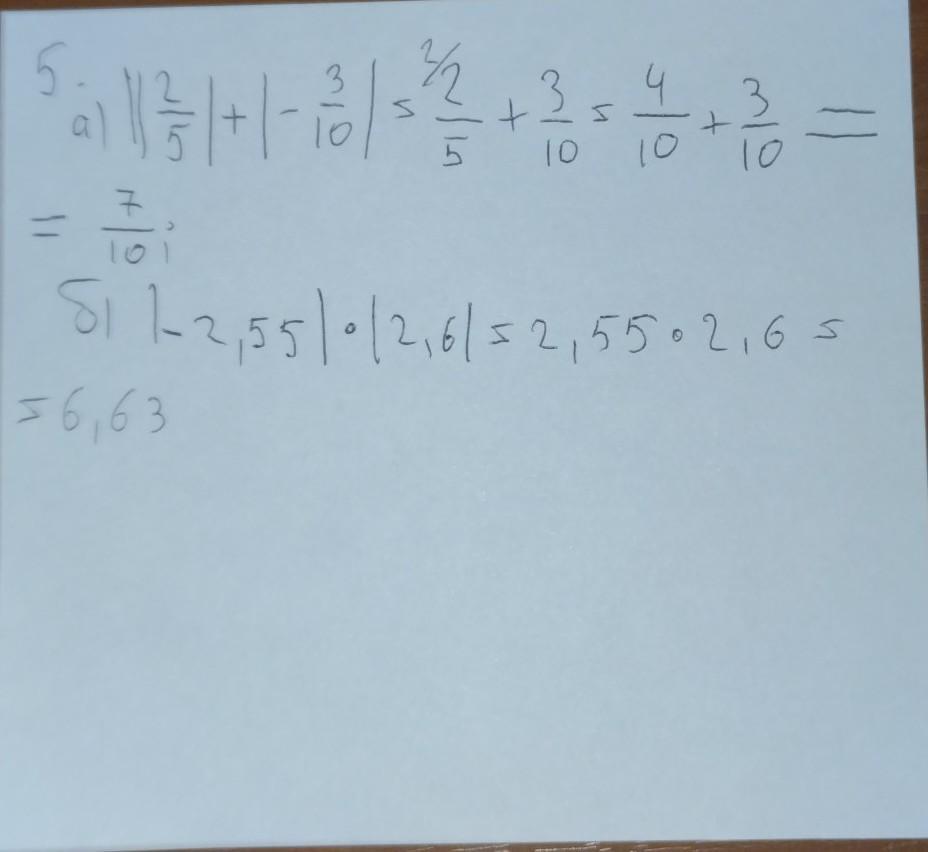 5.
а) |2/5| + |-3/10| = 2/5 + 3/10 = 4/10 + 3/10 =
= 7/10;
б) |-2,55| · |2,6| = 2,55 · 2,6 =
= 6,63